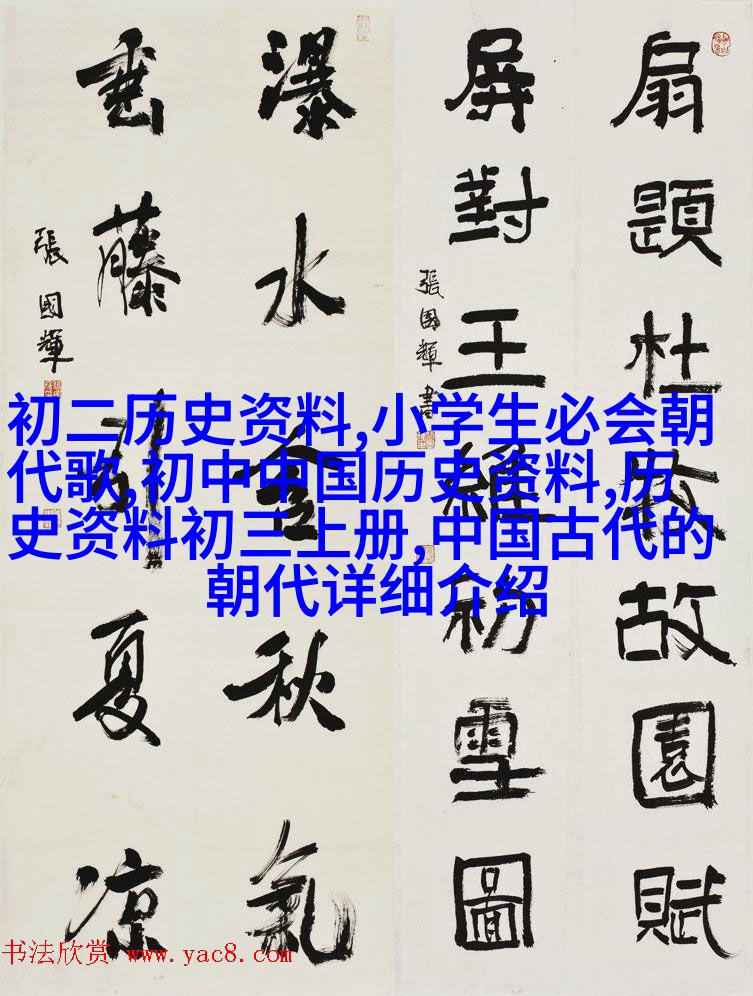 扇題杜牧故園賦
屏對王維初雪圖
張國輝書
瀑水含秋氣
垂藤引夏凉
張國輝
初二历史资料,小学生必会朝
代歌,初中中国历史资料,历
史资料初三上册,中国古代的
朝代详细介绍
书法欣赏 www.yac8.com